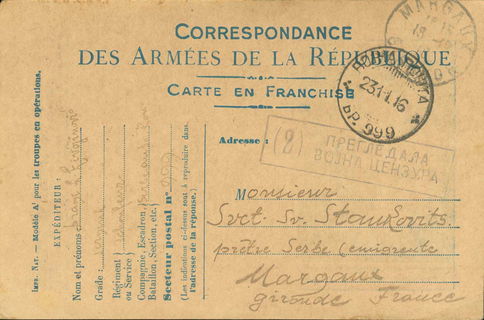 CORRESPONDANCE
DES ARMÉES DE LA RÉPUBLIQUE
CARTE EN FRANCHISE
MARGAUX
ВОЈНА ПОШТА
23.11.16
БР. 999
(2) ПРЕГЛЕДАЛА
ВОЈНА ЦЕНЗУРА
Adresse :
Monsieur
Svet. Sv. Stankovits
prêtre Serbe (emigrente
Margaux
gironde France
Imp. Nat. — Modèle A¹ pour les troupes en opérations.
EXPÉDITEUR :
Nom et prénoms
Grade :
Régiment
ou Service)
Compagnie, Escadron,
Bataillon, Section, etc.)
Secteur postal n°
(Les indications ci-dessus sont à reproduire dans
l'adresse de la réponse.)